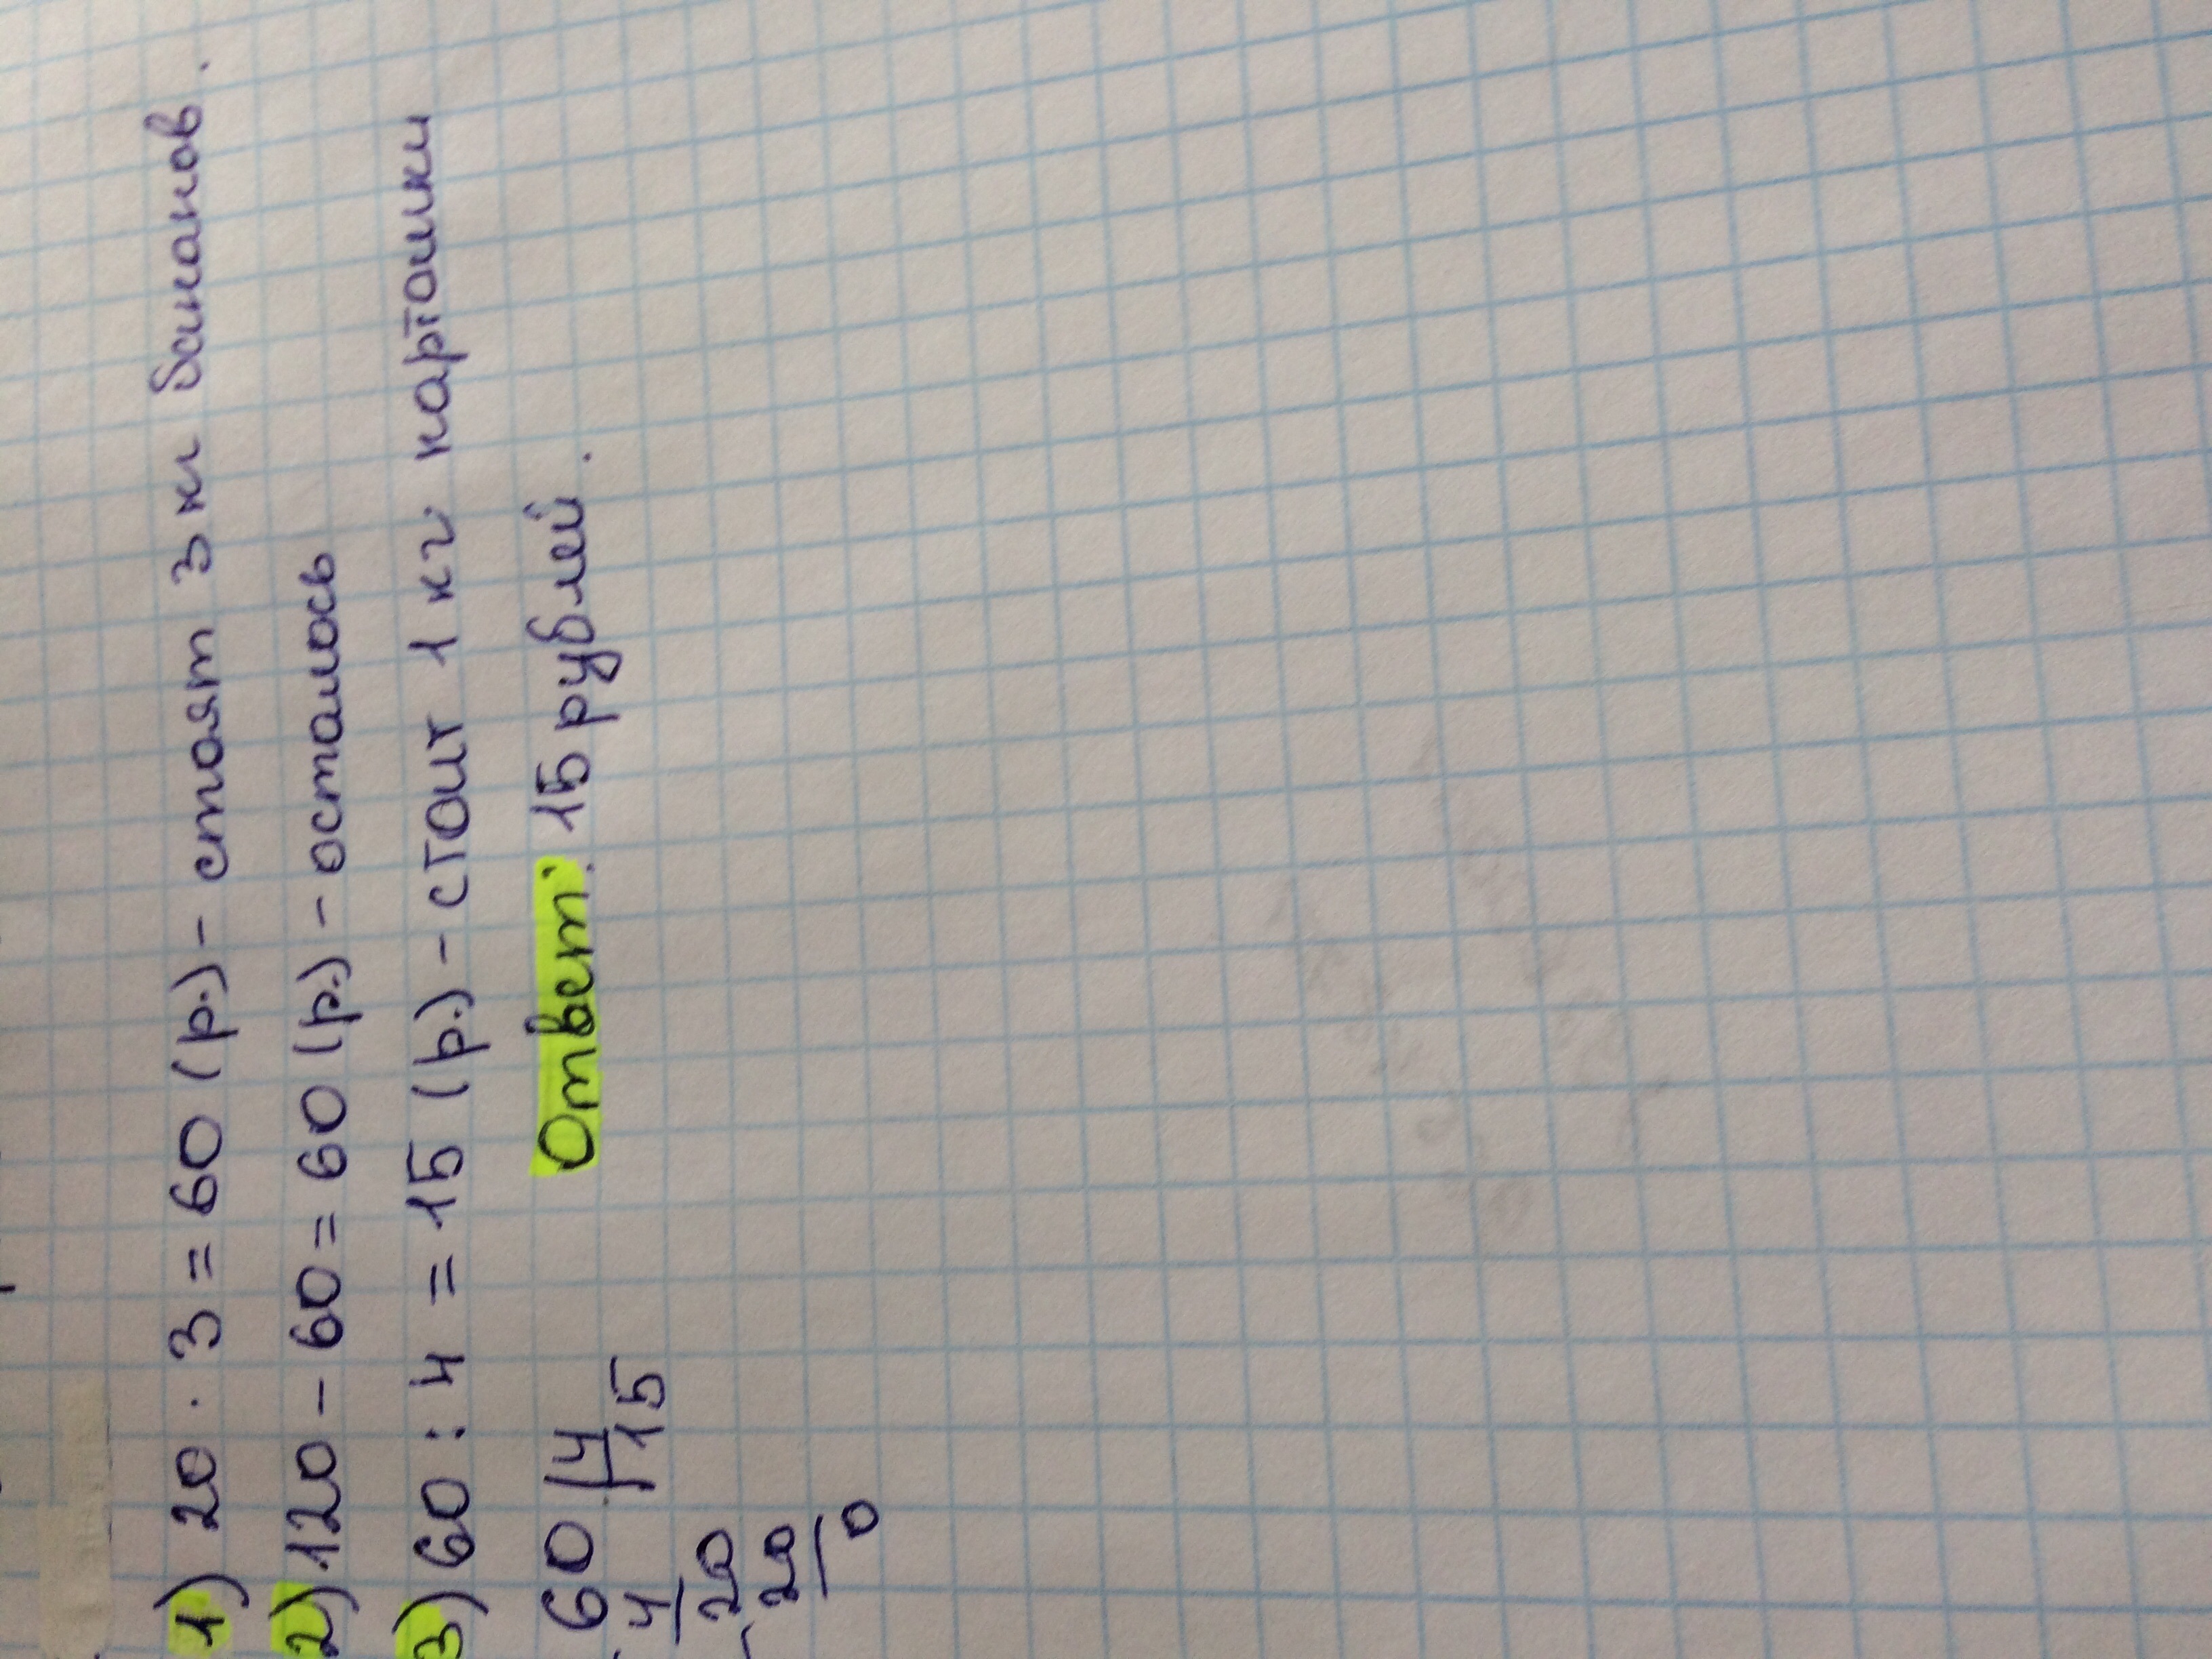 1) 20 · 3 = 60 (р.) - стоят 3 кг бананов.
2) 120 - 60 = 60 (р.) - осталось
3) 60 : 4 = 15 (р.) - стоит 1 кг картошки
Ответ: 15 рублей.
60 | 4
4 | 15
20
20
0